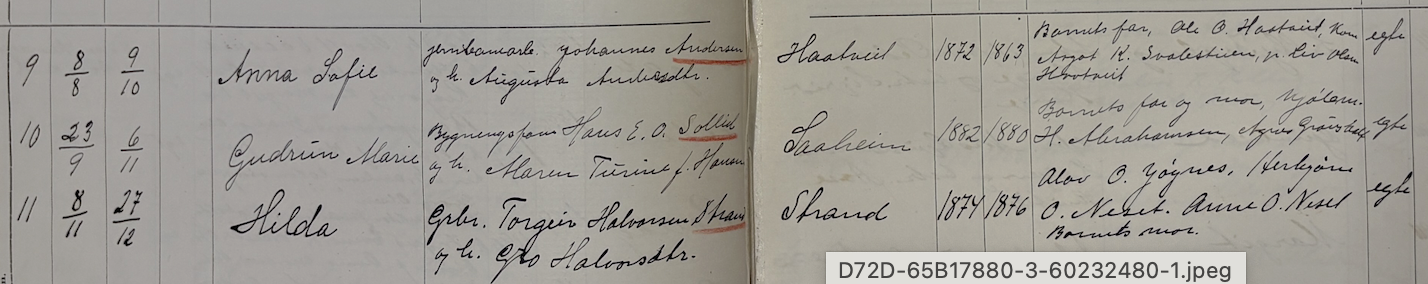 9 8/8 9/10 Anna Sofie Johannes Andersen Haatveit 1872 1863 Barnets far, Ole O. Haatveit, egte
og h. Augusta Andersdtr. Aagot K. p. Liv Olsen
10 23/9 6/11 Gudrun Marie Hans E. O. Sollid Saaheim 1882 1880 Barnets far og mor, egte
og h. Maren Turine f. Hansen H. Abrahamsen, Agnes
11 8/11 27/12 Hilda Grbr. Torgeir Halvorsen Strand Strand 1874 1876 Olav O. Herbjørn egte
og h. Gro Halvorsdtr. O. Neset. Anne O. Neset
Barnets mor.
D72D-65B17880-3-60232480-1.jpeg